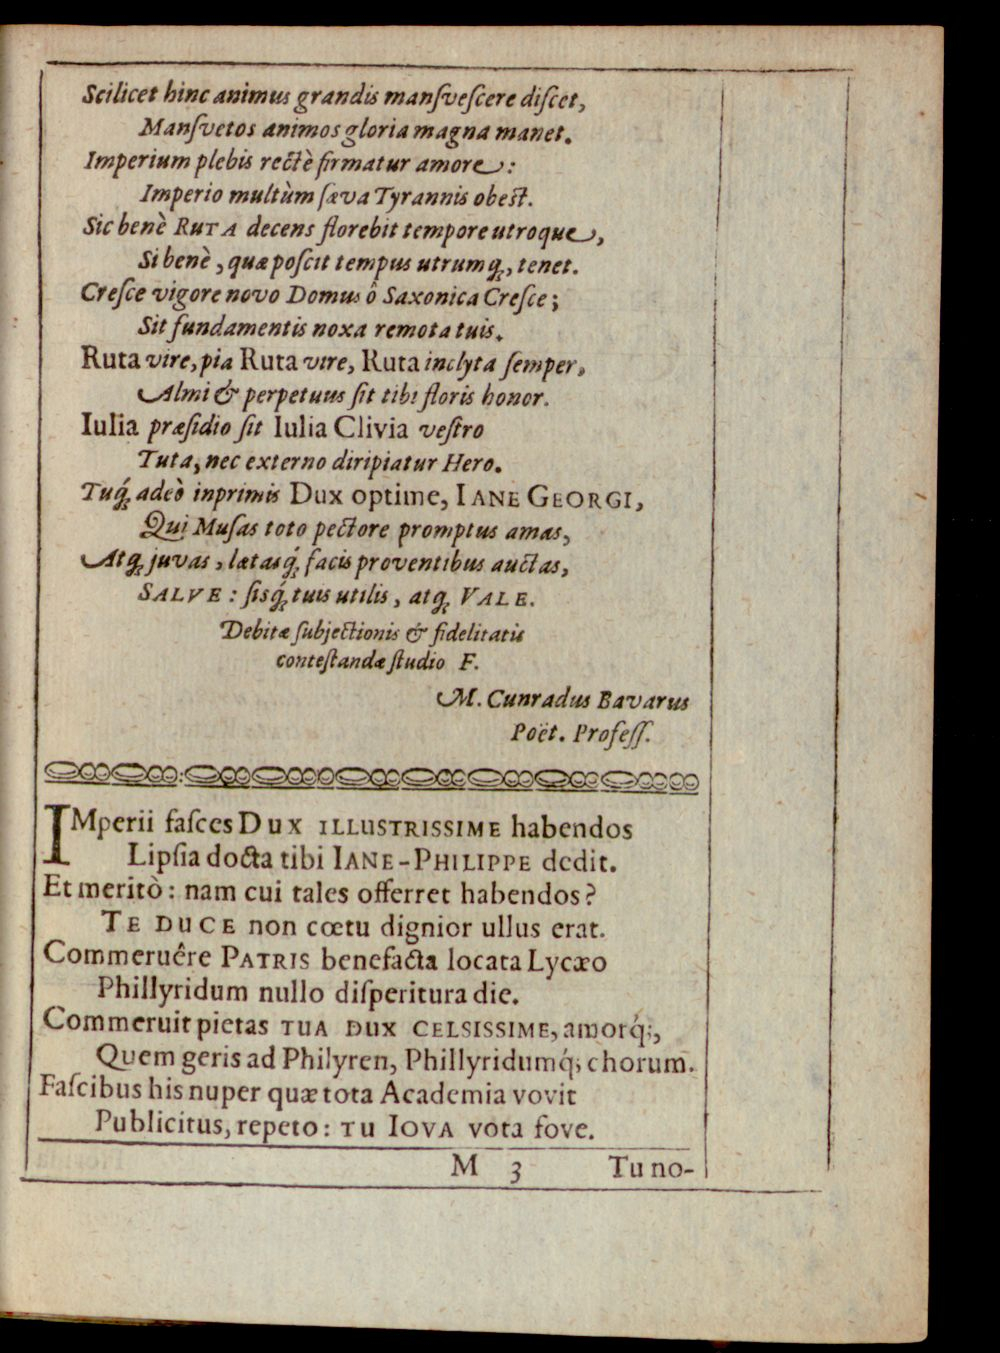 Scilicet hinc animus grandis manſveſcere diſcet,
Manſvetos animos gloria magna manet.
Imperium plebis rectè firmatur amore:
Imperio multùm ſæva Tyrannis obeſt.
Sic benè RUTA decens florebit tempore utroque,
Si benè, quæ poſcit tempus utrumq́;, tenet.
Creſce vigore novo Domus ô Saxonica Creſce;
Sit fundamentis noxa remota tuis.
Ruta vire, pia Ruta vire, Ruta inclyta ſemper,
Almi & perpetuus ſit tibi floris honor.
Iulia præſidio ſit Iulia Clivia veſtro
Tuta, nec externo diripiatur Hero.
Tuq́; adeò inprimis Dux optime, IANE GEORGI,
Qui Muſas toto pectore promptus amas,
Atq; juvas, lætasq́; facis proventibus auctas,
SALVE: ſisq́; tuis utilis, atq; VALE.
Debitæ ſubjectionis & fidelitatis
conteſtandæ ſtudio F.
M. Cunradus Bavarus
Poët. Profeſſ.
IMperii faſces Dux ILLUSTRISSIME habendos
Lipſia docta tibi IANE-PHILIPPE dedit.
Et meritò: nam cui tales offerret habendos?
TE DUCE non cœtu dignior ullus erat.
Commeruêre PATRIS benefacta locata Lycæo
Phillyridum nullo diſperitura die.
Commeruit pietas TUA DUX CELSISSIME, amorq́;,
Quem geris ad Philyren, Phillyridumq́; chorum.
Faſcibus his nuper quæ tota Academia vovit
Publicitus, repeto: TU IOVA vota fove.
M 3 Tu no-